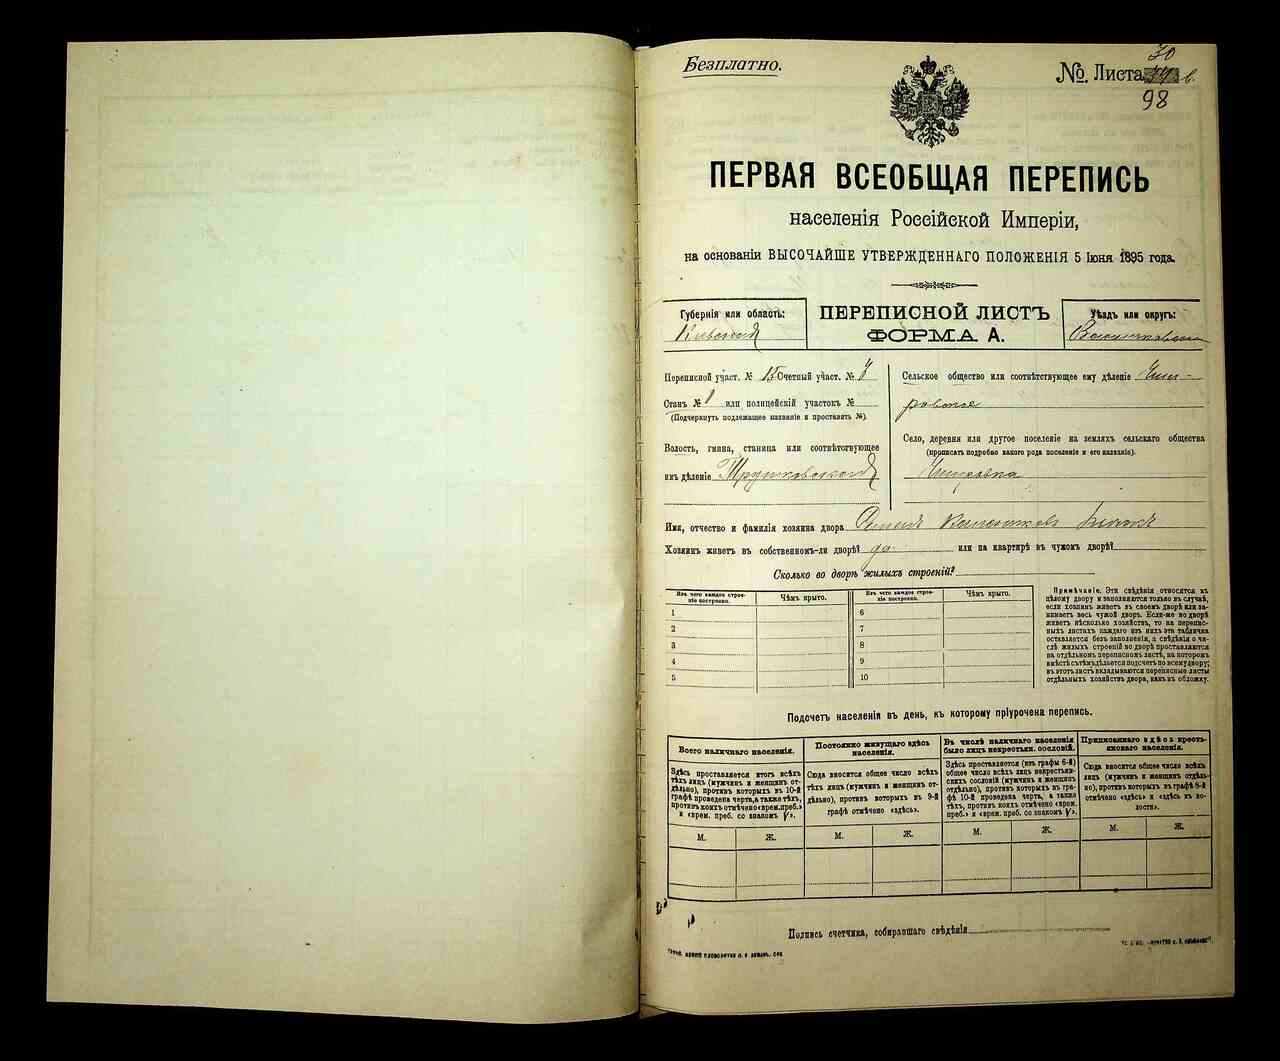 Безплатно.
№. Листа
98
ПЕРВАЯ ВСЕОБЩАЯ ПЕРЕПИСЬ
населенія Россійской Имперіи,
на основаніи ВЫСОЧАЙШЕ УТВЕРЖДЕННАГО ПОЛОЖЕНІЯ 5 Іюня 1895 года.
Губернія или область:
ПЕРЕПИСНОЙ ЛИСТЪ
ФОРМА А.
Уѣздъ или округъ:
Переписной участ. № 15 Счетный участ. №
Станъ № или полицейскій участокъ №
(Подчеркнуть подлежащее названіе и проставить №).
Волость, гмина, станица или соотвѣтствующее
имъ дѣленіе
Сельское общество или соотвѣтствующее ему дѣленіе
Село, деревня или другое поселеніе на земляхъ сельскаго общества
(прописать подробно какого рода поселеніе и его названіе).
Имя, отчество и фамилія хозяина двора
Хозяинъ живетъ въ собственномъ-ли дворѣ? да или на квартирѣ въ чужомъ дворѣ?
Сколько во дворѣ жилыхъ строеній?
Изъ чего каждое строе-
ніе построено.
Чѣмъ крыто.
1
2
3
4
5
Изъ чего каждое строе-
ніе построено.
Чѣмъ крыто.
6
7
8
9
10
Примѣчаніе. Эти свѣдѣнія относятся къ
цѣлому двору и заполняются только въ случаѣ,
если хозяинъ живетъ въ своемъ дворѣ или за-
нимаетъ весь чужой дворъ. Если-же во дворѣ
живетъ нѣсколько хозяйствъ, то на перепис-
ныхъ листахъ каждаго изъ нихъ эта табличка
оставляется безъ заполненія, а свѣдѣнія о чи-
слѣ жилыхъ строеній во дворѣ проставляются
на отдѣльномъ переписномъ листѣ, на которомъ
вмѣстѣ съ тѣмъ дѣлается подсчетъ по всему двору;
въ этотъ листъ вкладываются переписные листы
отдѣльныхъ хозяйствъ двора, какъ въ обложку.
Подсчетъ населенія въ день, къ которому пріурочена перепись.
Всего наличнаго населенія.
Здѣсь проставляется итогъ всѣхъ
тѣхъ лицъ (мужчинъ и женщинъ от-
дѣльно), противъ которыхъ въ 10-й
графѣ проведена черта, а также тѣхъ,
противъ коихъ отмѣчено «врем. преб.»
и «врем. преб. со знакомъ V».
М. Ж.
Постоянно живущаго здѣсь
населенія.
Сюда вносится общее число всѣхъ
тѣхъ лицъ (мужчинъ и женщинъ от-
дѣльно), противъ которыхъ въ 9-й
графѣ отмѣчено «здѣсь».
М. Ж.
Въ числѣ наличнаго населенія
было лицъ некрестьян. сословій.
Здѣсь проставляется (изъ графы 6-й)
общее число всѣхъ лицъ некрестьян-
скихъ сословій (мужчинъ и женщинъ
отдѣльно), противъ которыхъ въ гра-
фѣ 10-й проведена черта, а также
тѣхъ, противъ коихъ отмѣчено «врем.
преб.» и «врем. преб. со знакомъ V».
М. Ж.
Приписаннаго здѣсь кресть-
янскаго населенія.
Сюда вносится общее число всѣхъ
лицъ (мужчинъ и женщинъ отдѣль-
но), противъ которыхъ въ графѣ 8-й
отмѣчено «здѣсь» и «здѣсь въ во-
лости».
М. Ж.
Подпись счетчика, собиравшаго свѣдѣнія